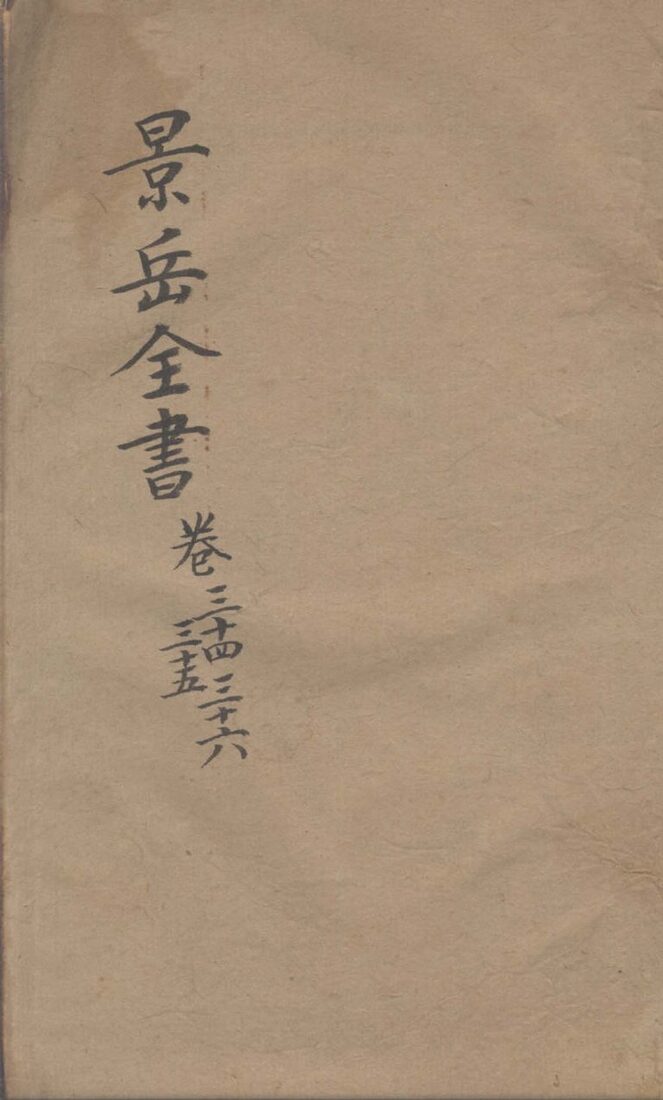 景岳全書
卷三十四三十六
三十五